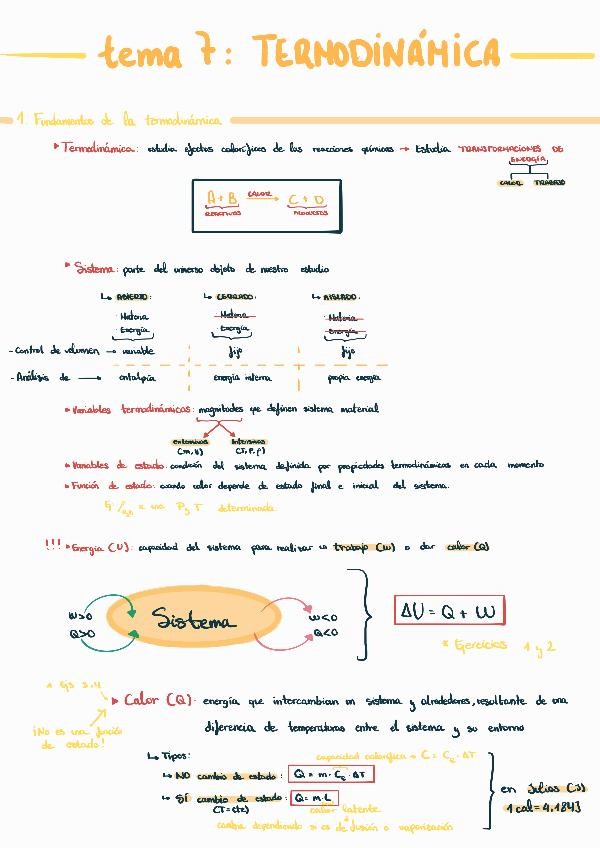 tema 7: TERMODINÁMICA
1. Fundamentos de la termodinámica
Termodinámica: estudia efectos caloríficos de las reacciones químicas → Estudia TRANSFORMACIONES DE
ENERGÍA
CALOR TRABAJO
A + B CALOR → C + D
REACTIVOS PRODUCTOS
Sistema: parte del universo objeto de nuestro estudio
↳ ABIERTO: ↳ CERRADO: ↳ AISLADO:
Materia Materia Materia
Energía Energía Energía
- Control de volumen → variable fijo fijo
- Análisis de → entalpía energía interna propia energía
Variables termodinámicas: magnitudes que definen sistema material
extensivas intensivas
(m, V) (T, P, ρ)
Variables de estado: condición del sistema definida por propiedades termodinámicas en cada momento
Función de estado: cuando valor depende de estado final e inicial del sistema.
P y T determinada
!!! Energía (U): capacidad del sistema para realizar un trabajo (W) o dar calor (Q)
W>0 Sistema W<0
Q>0 Q<0
ΔU = Q + W
* Ejercicios 1 y 2
* Ejs 3, 4
Calor (Q): energía que intercambian un sistema y alrededores, resultante de una
diferencia de temperaturas entre el sistema y su entorno
¡No es una función
de estado!
↳ Tipos: capacidad calorífica → C = Ce · ΔT
↳ NO cambio de estado: Q = m · Ce · ΔT
↳ SÍ cambio de estado: Q = m · L
(T = cte) calor latente
cambia dependiendo si es de fusión o vaporización
en Julios (J)
1 cal = 4,184J